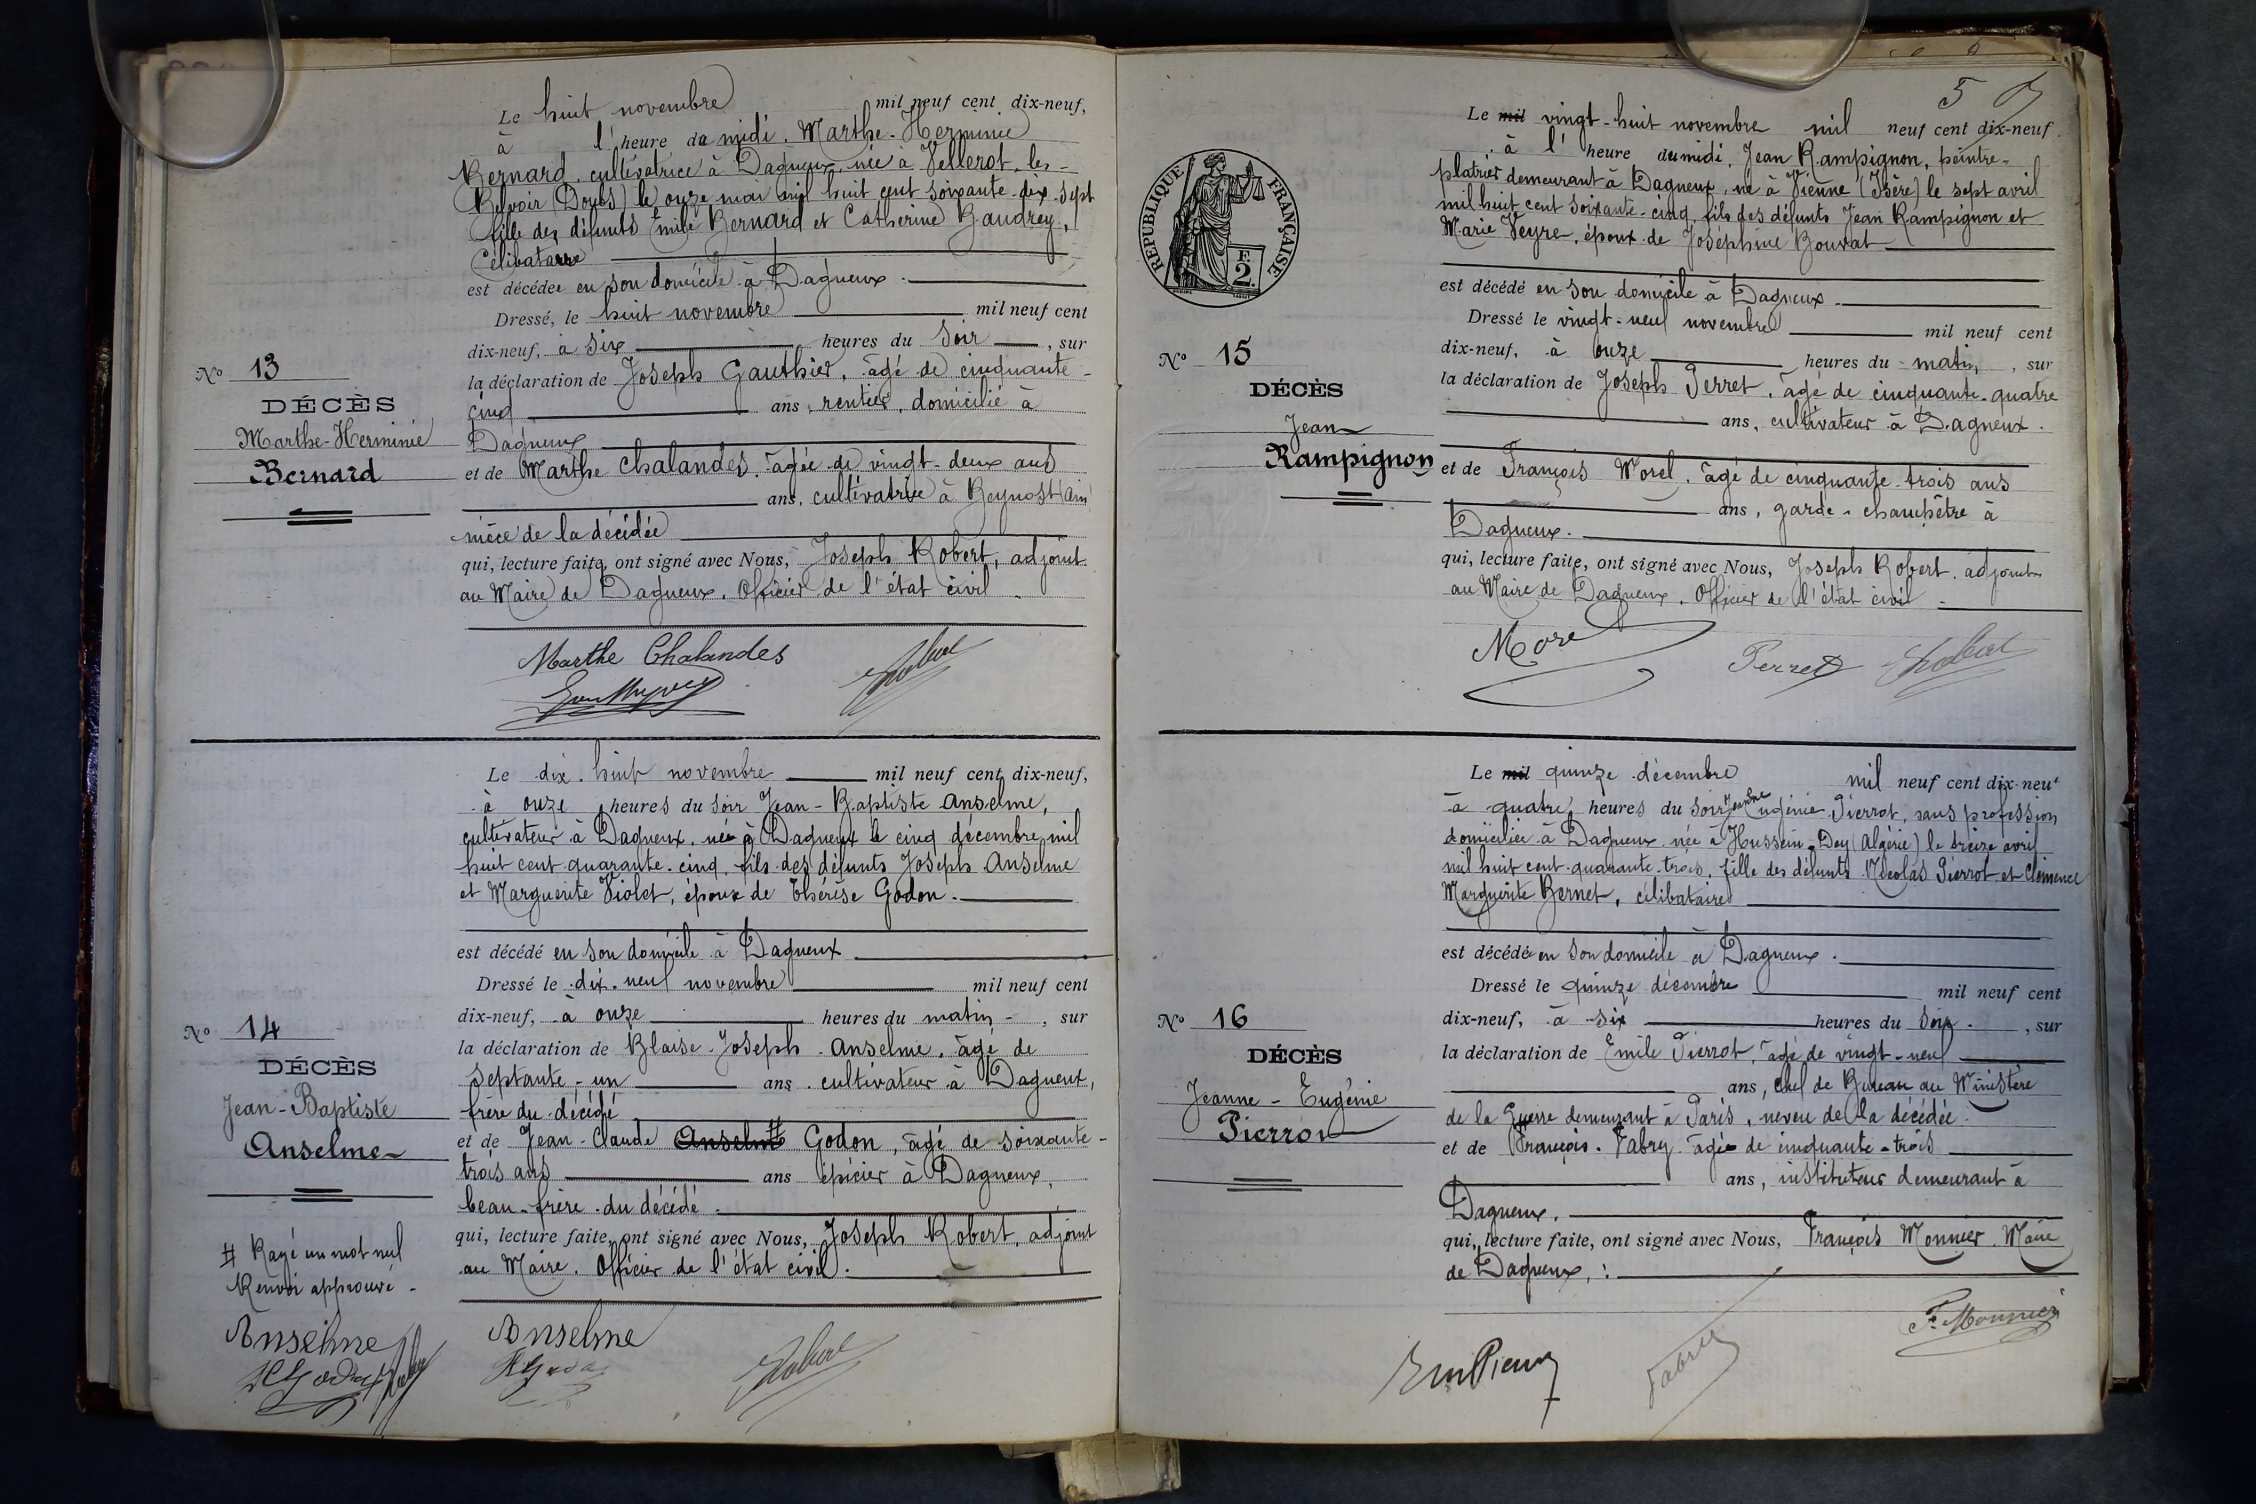 Le huit novembre mil neuf cent dix-neuf,
à l'heure de midi. Marthe-Herminie
Bernard, cultivatrice à Dagneux, née à Vellerot-les-
Belvoir (Doubs) le onze mai mil huit cent soixante-dix-sept
fille des défunts Emile Bernard et Catherine Gaudrey,
Célibataire
est décédée en son domicile à Dagneux.
Dressé, le huit novembre mil neuf cent
dix-neuf, à six heures du soir, sur
la déclaration de Joseph Gauthier, âgé de cinquante-
cinq ans, rentier, domicilié à
Dagneux
et de Marthe Chalandes, âgée de vingt-deux ans
ans, cultivatrice à Beynost (Ain)
nièce de la décédée
qui, lecture faite, ont signé avec Nous, Joseph Robert, adjoint
au Maire de Dagneux, Officier de l'état civil.
No 13
DÉCÈS
Marthe-Herminie
Bernard
Marthe Chalandes
Le dix-huit novembre mil neuf cent dix-neuf,
à onze heures du soir Jean-Baptiste Anselme,
cultivateur à Dagneux, né à Dagneux le cinq décembre mil
huit cent quarante-cinq, fils des défunts Joseph Anselme
et Marguerite Violet, époux de Thérèse Godon.
est décédé en son domicile à Dagneux
Dressé le dix-neuf novembre mil neuf cent
dix-neuf, à onze heures du matin, sur
la déclaration de Blaise-Joseph Anselme, âgé de
septante-un ans, cultivateur à Dagneux,
frère du décédé
et de Jean-Claude Anselme # Godon, âgé de soixante-
trois ans ans épicier à Dagneux,
beau-frère du décédé.
qui, lecture faite, ont signé avec Nous, Joseph Robert, adjoint
au Maire, Officier de l'état civil.
No 14
DÉCÈS
Jean-Baptiste
Anselme
# Rayé un mot nul
Renvoi approuvé
Anselme
Anselme
Robert
5
Le mil vingt-huit novembre mil neuf cent dix-neuf.
à l'heure de midi, Jean Rampignon, peintre-
platrier demeurant à Dagneux, né à Vienne (Isère) le sept avril
mil huit cent soixante-cinq, fils des défunts Jean Rampignon et
Marie Veyre, époux de Joséphine Bouvat
est décédé en son domicile à Dagneux.
Dressé le vingt-neuf novembre mil neuf cent
dix-neuf, à onze heures du matin, sur
la déclaration de Joseph Perret, âgé de cinquante-quatre
ans, cultivateur à Dagneux.
et de François Morel, âgé de cinquante-trois ans
ans, garde-champêtre à
Dagneux.
qui, lecture faite, ont signé avec Nous, Joseph Robert, adjoint
au Maire de Dagneux, Officier de l'état civil.
RÉPUBLIQUE FRANÇAISE
2 F.
No 15
DÉCÈS
Jean
Rampignon
Morel
Perret
Le mil quinze décembre mil neuf cent dix-neuf
à quatre heures du soir Jeanne Eugénie Pierrot, sans profession
domiciliée à Dagneux née à Hussein-Dey (Algérie) le treize avril
mil huit cent quarante-trois, fille des défunts Nicolas Pierrot et Clémence
Marguerite Bernet, célibataire
est décédée en son domicile à Dagneux.
Dressé le quinze décembre mil neuf cent
dix-neuf, à six heures du soir, sur
la déclaration de Emile Pierrot, âgé de vingt-neuf
ans, chef de Bureau au Ministère
de la Guerre demeurant à Paris, neveu de la décédée.
et de François Fabry âgé de cinquante-trois
ans, instituteur demeurant à
Dagneux.
qui, lecture faite, ont signé avec Nous, François Monnier, Maire
de Dagneux,
No 16
DÉCÈS
Jeanne-Eugénie
Pierrot
F. Monnier